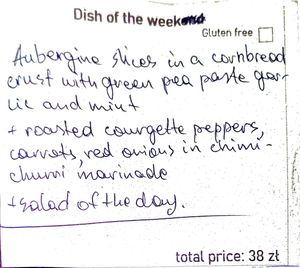 Dish of the weekend
Gluten free
Aubergine slices in a cornbread
crust with green pea paste gar-
lic and mint
+ roasted courgette peppers,
carrots, red onions in chimi-
churri marinade
+salad of the day.
total price: 38 zł